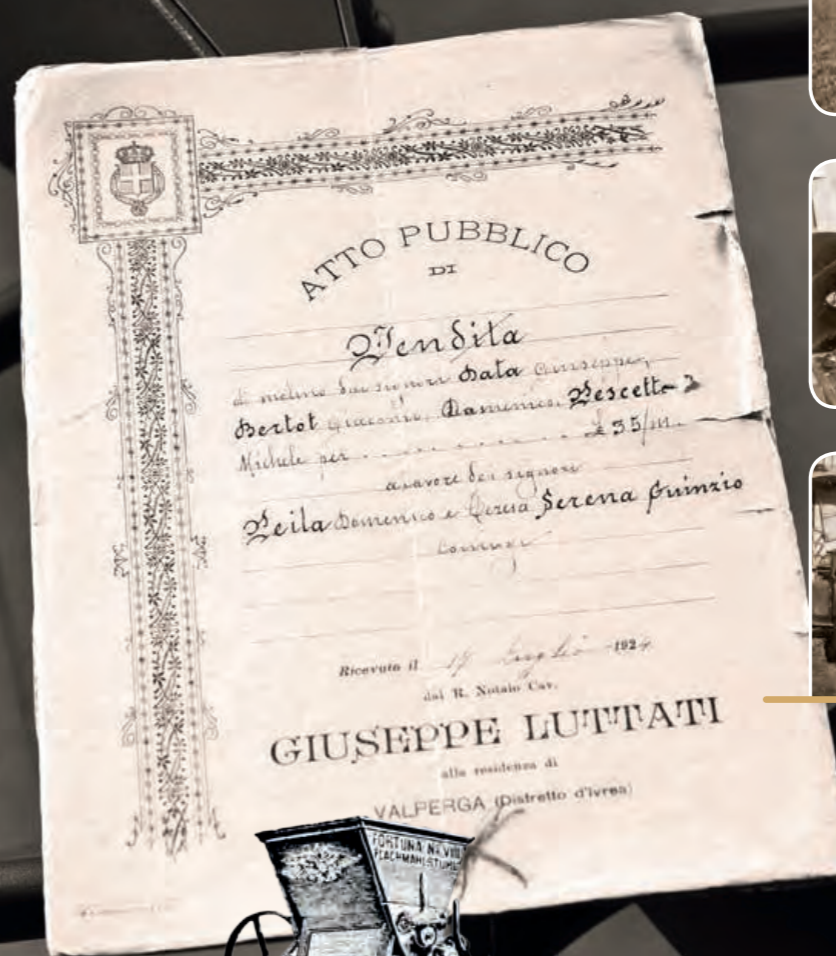 ATTO PUBBLICO
DI
Vendita
di molino dai signori Data Giuseppe,
Bertot Giacomo, Domenico, Pescetto
Michele per £ 35/m.
a favore dei signori
Peila Domenico e Teresa Serena Guinzio
coniugi
Ricevuto il Luglio 1924
dal R. Notaio Cav.
GIUSEPPE LUTTATI
alla residenza di
VALPERGA (Distretto d'Ivrea)
FORTUNA Nr. VIII
FLACHMAHLSTUHL